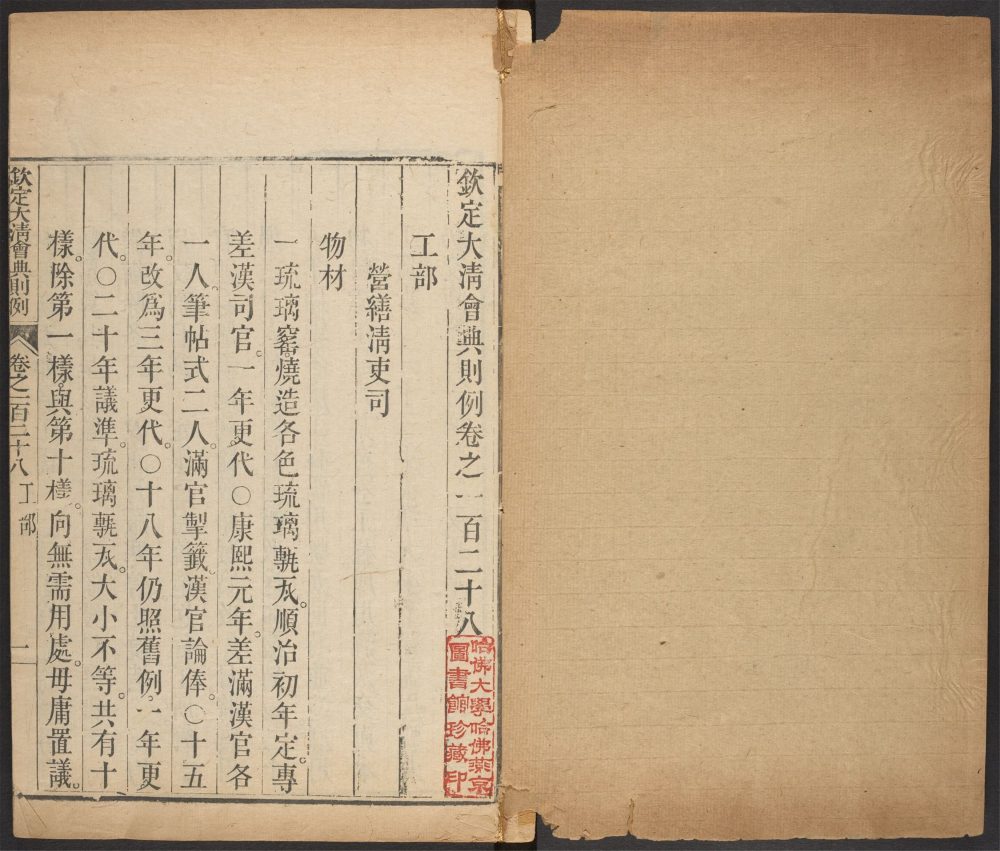 欽定大淸會典則例卷之一百二十八
哈佛大學哈佛燕京
圖書館珍藏印
工部
營繕淸吏司
物材
一琉璃窰燒造各色琉璃甎瓦。順治初年定。專
差漢司官。一年更代○康熙元年。差滿漢官各
一人。筆帖式二人。滿官掣籤。漢官論俸。○十五
年。改爲三年更代。○十八年仍照舊例。一年更
代。○二十年議準。琉璃甎瓦。大小不等。共有十
樣。除第一樣。與第十樣。向無需用處。毋庸置議。
欽定大淸會典則例
卷之一百二十八 工部
一